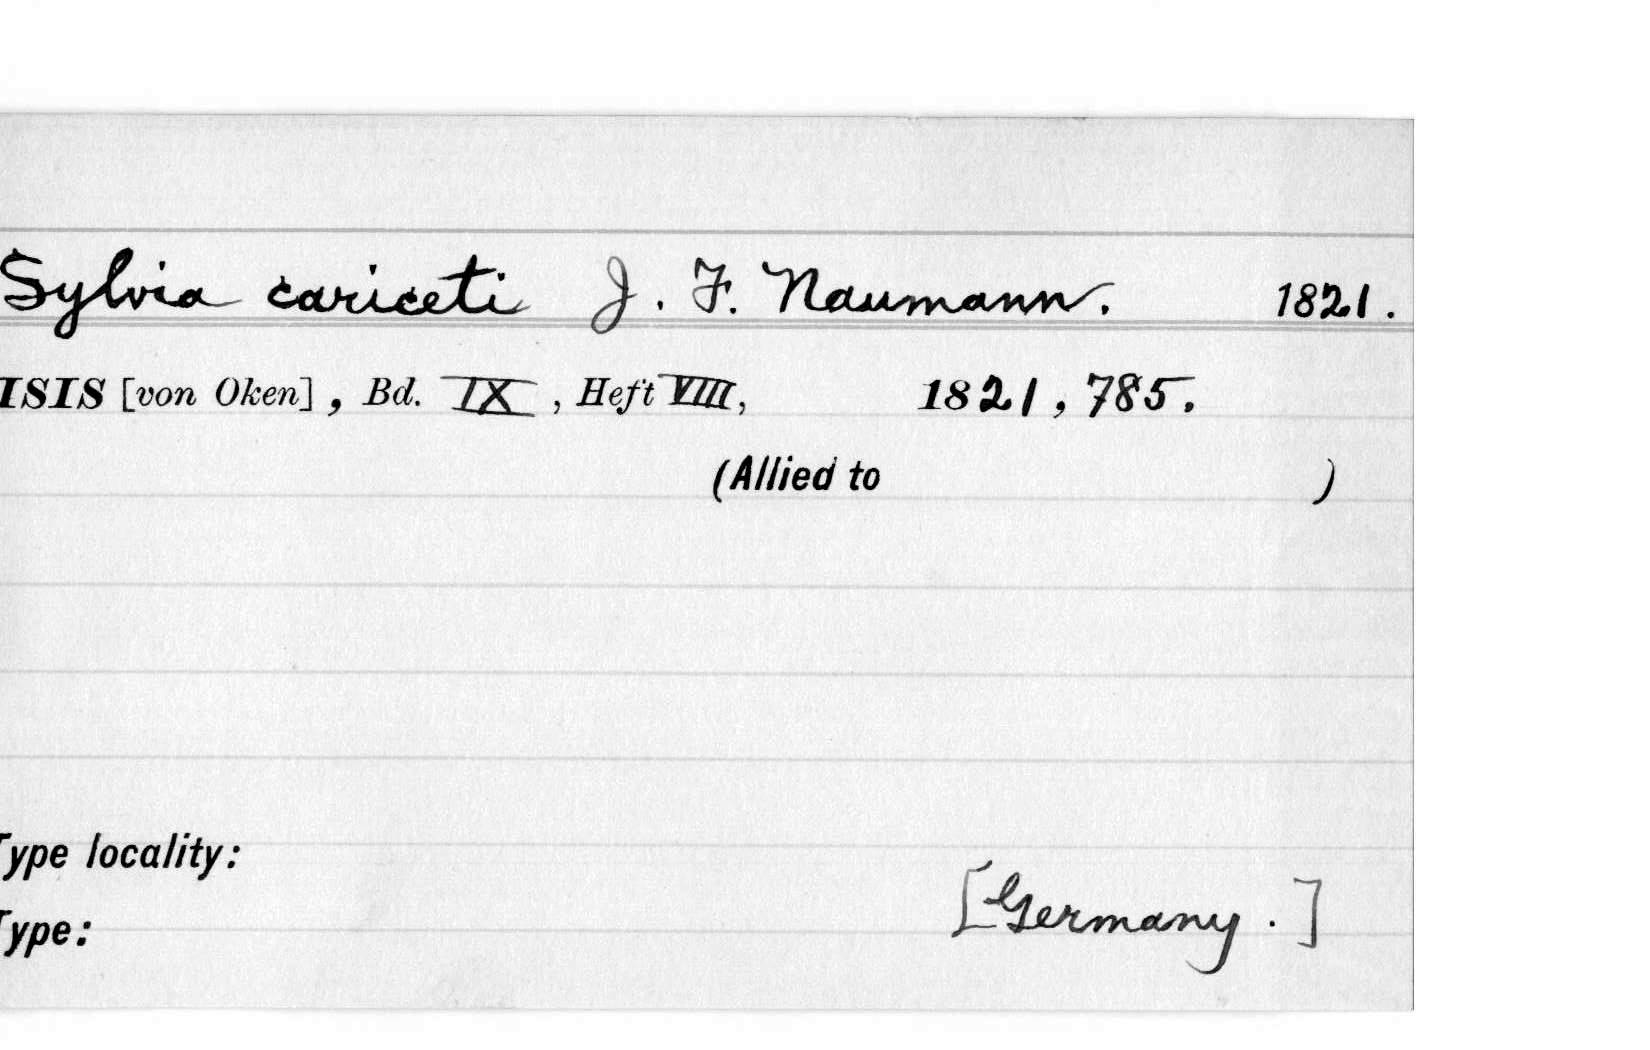 Sylvia cariceti J. F. Naumann. 1821.
ISIS [von Oken], Bd. IX, Heft VIII, 1821, 785.
(Allied to )
Type locality:
[Germany.]
Type: